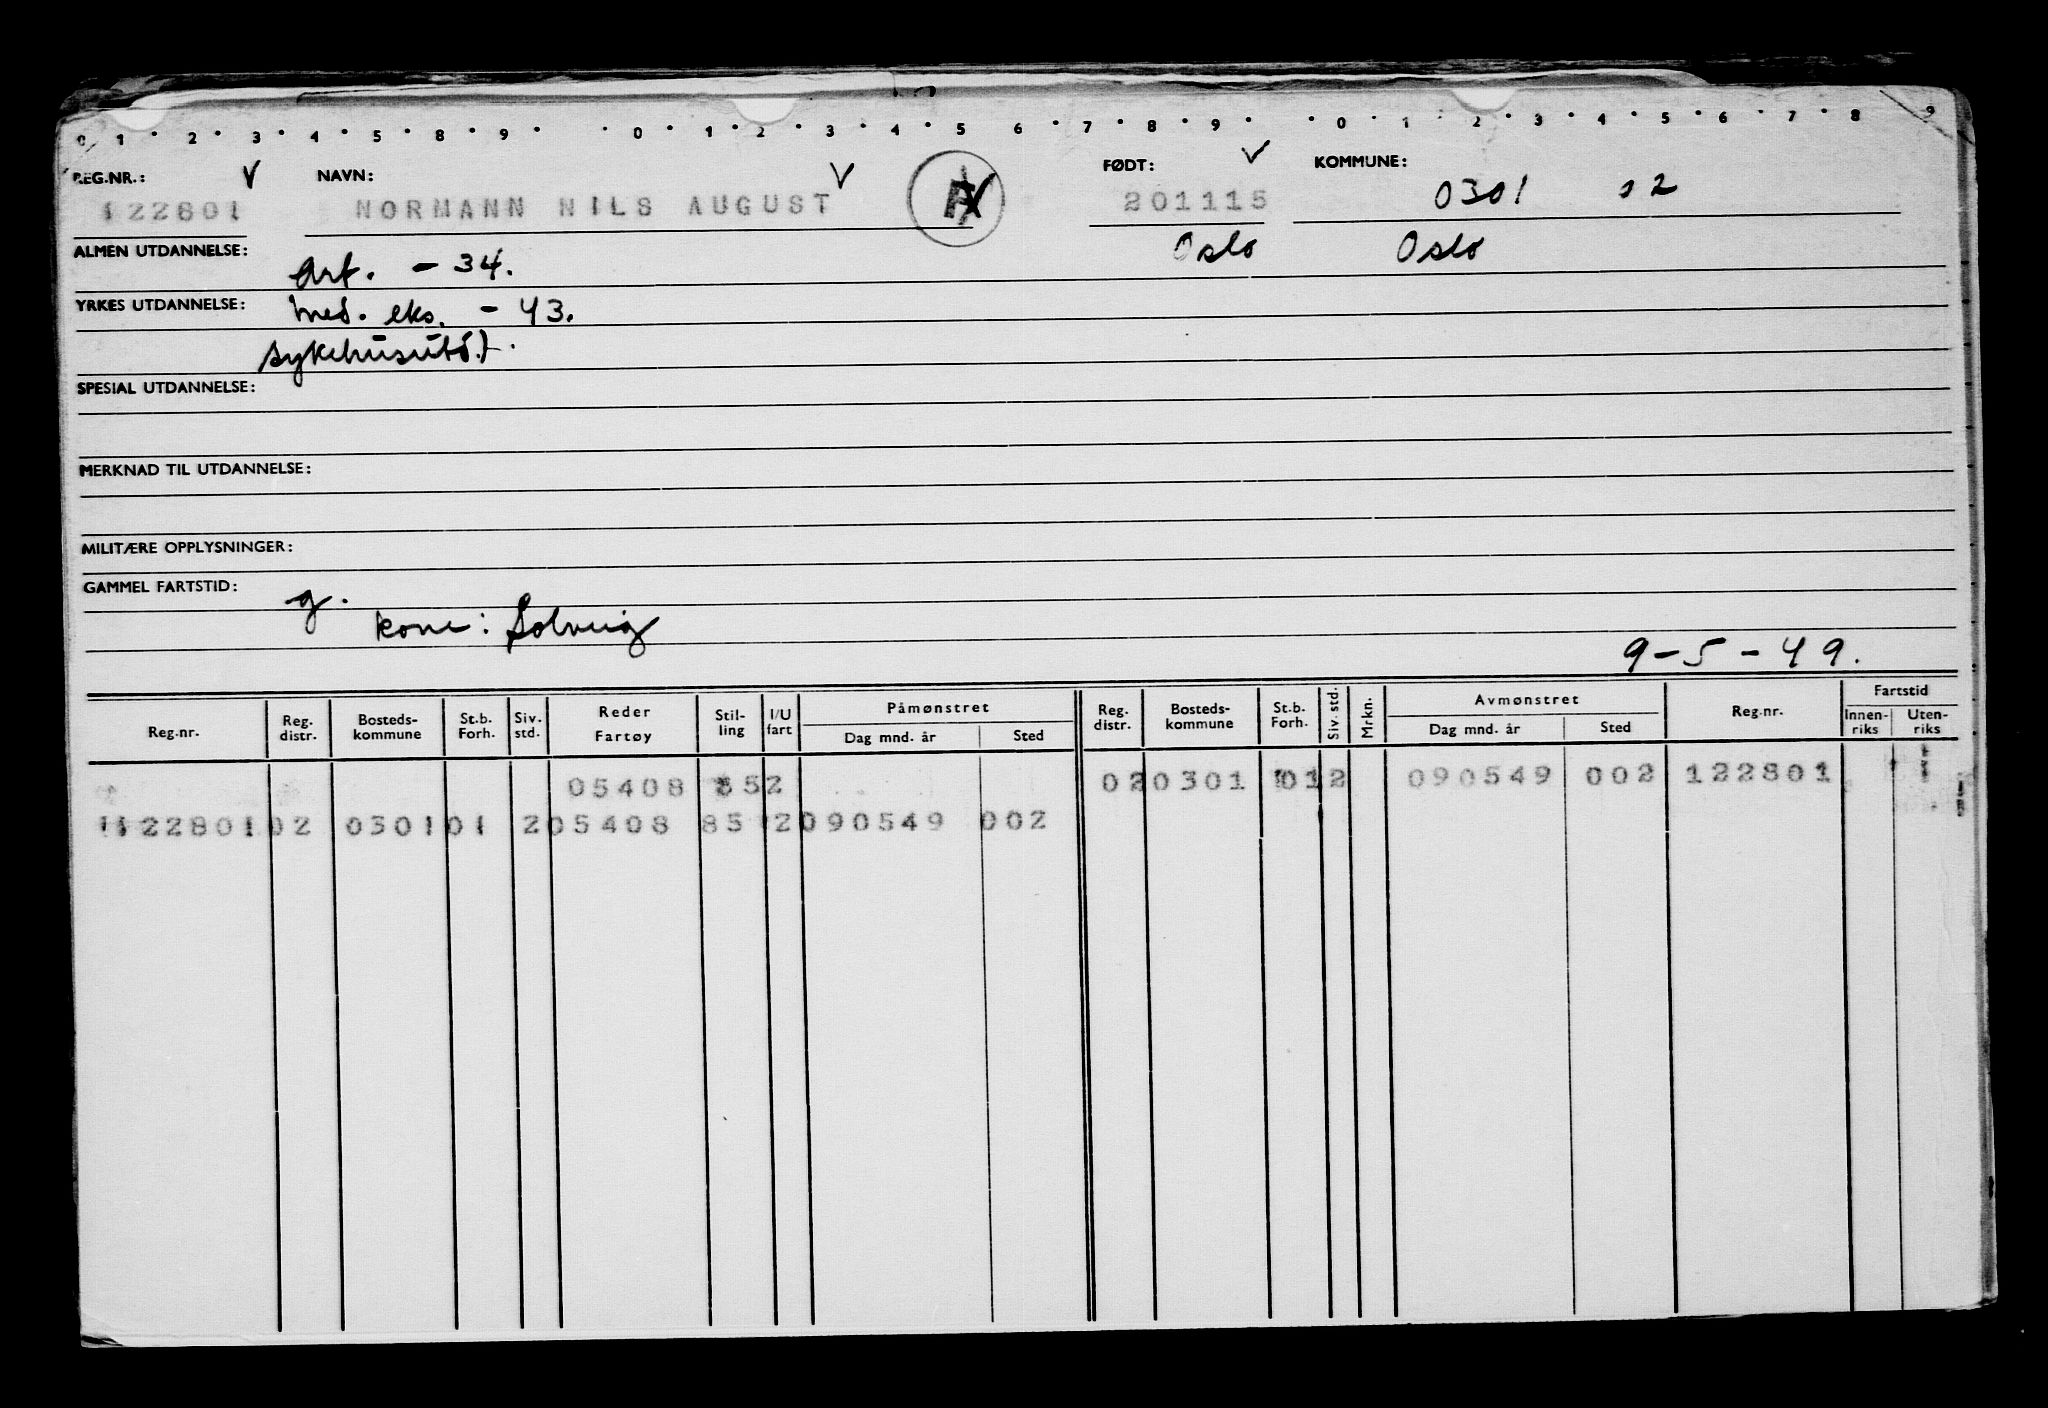 0 1 2 3 4 5 8 9 0 1 2 3 4 5 6 7 8 9 0 1 2 3 4 5 6 7 8 9
REG.NR.: V NAVN: V FØDT: V KOMMUNE:
122801 NORMANN NILS AUGUST 201115 0301 02
ALMEN UTDANNELSE: Art. - 34. Oslo Oslo
YRKES UTDANNELSE: Med. eks. - 43.
sykehusutd.
SPESIAL UTDANNELSE:
MERKNAD TIL UTDANNELSE:
MILITÆRE OPPLYSNINGER:
GAMMEL FARTSTID: g.
kone: Solveig
9-5-49.
Reg.nr. Reg. distr. Bosteds-kommune St.b. Forh. Siv. std. Reder Fartøy Stil-ling I/U fart Påmønstret Dag mnd. år Sted Reg. distr. Bosteds-kommune St.b. Forh. Siv. std. Mrkn. Avmønstret Dag mnd. år Sted Reg.nr. Fartstid Innen-riks Uten-riks
05408 852 020301 012 090549 002 122801
122801 02 0301 01 2 05408 85 2 090549 002